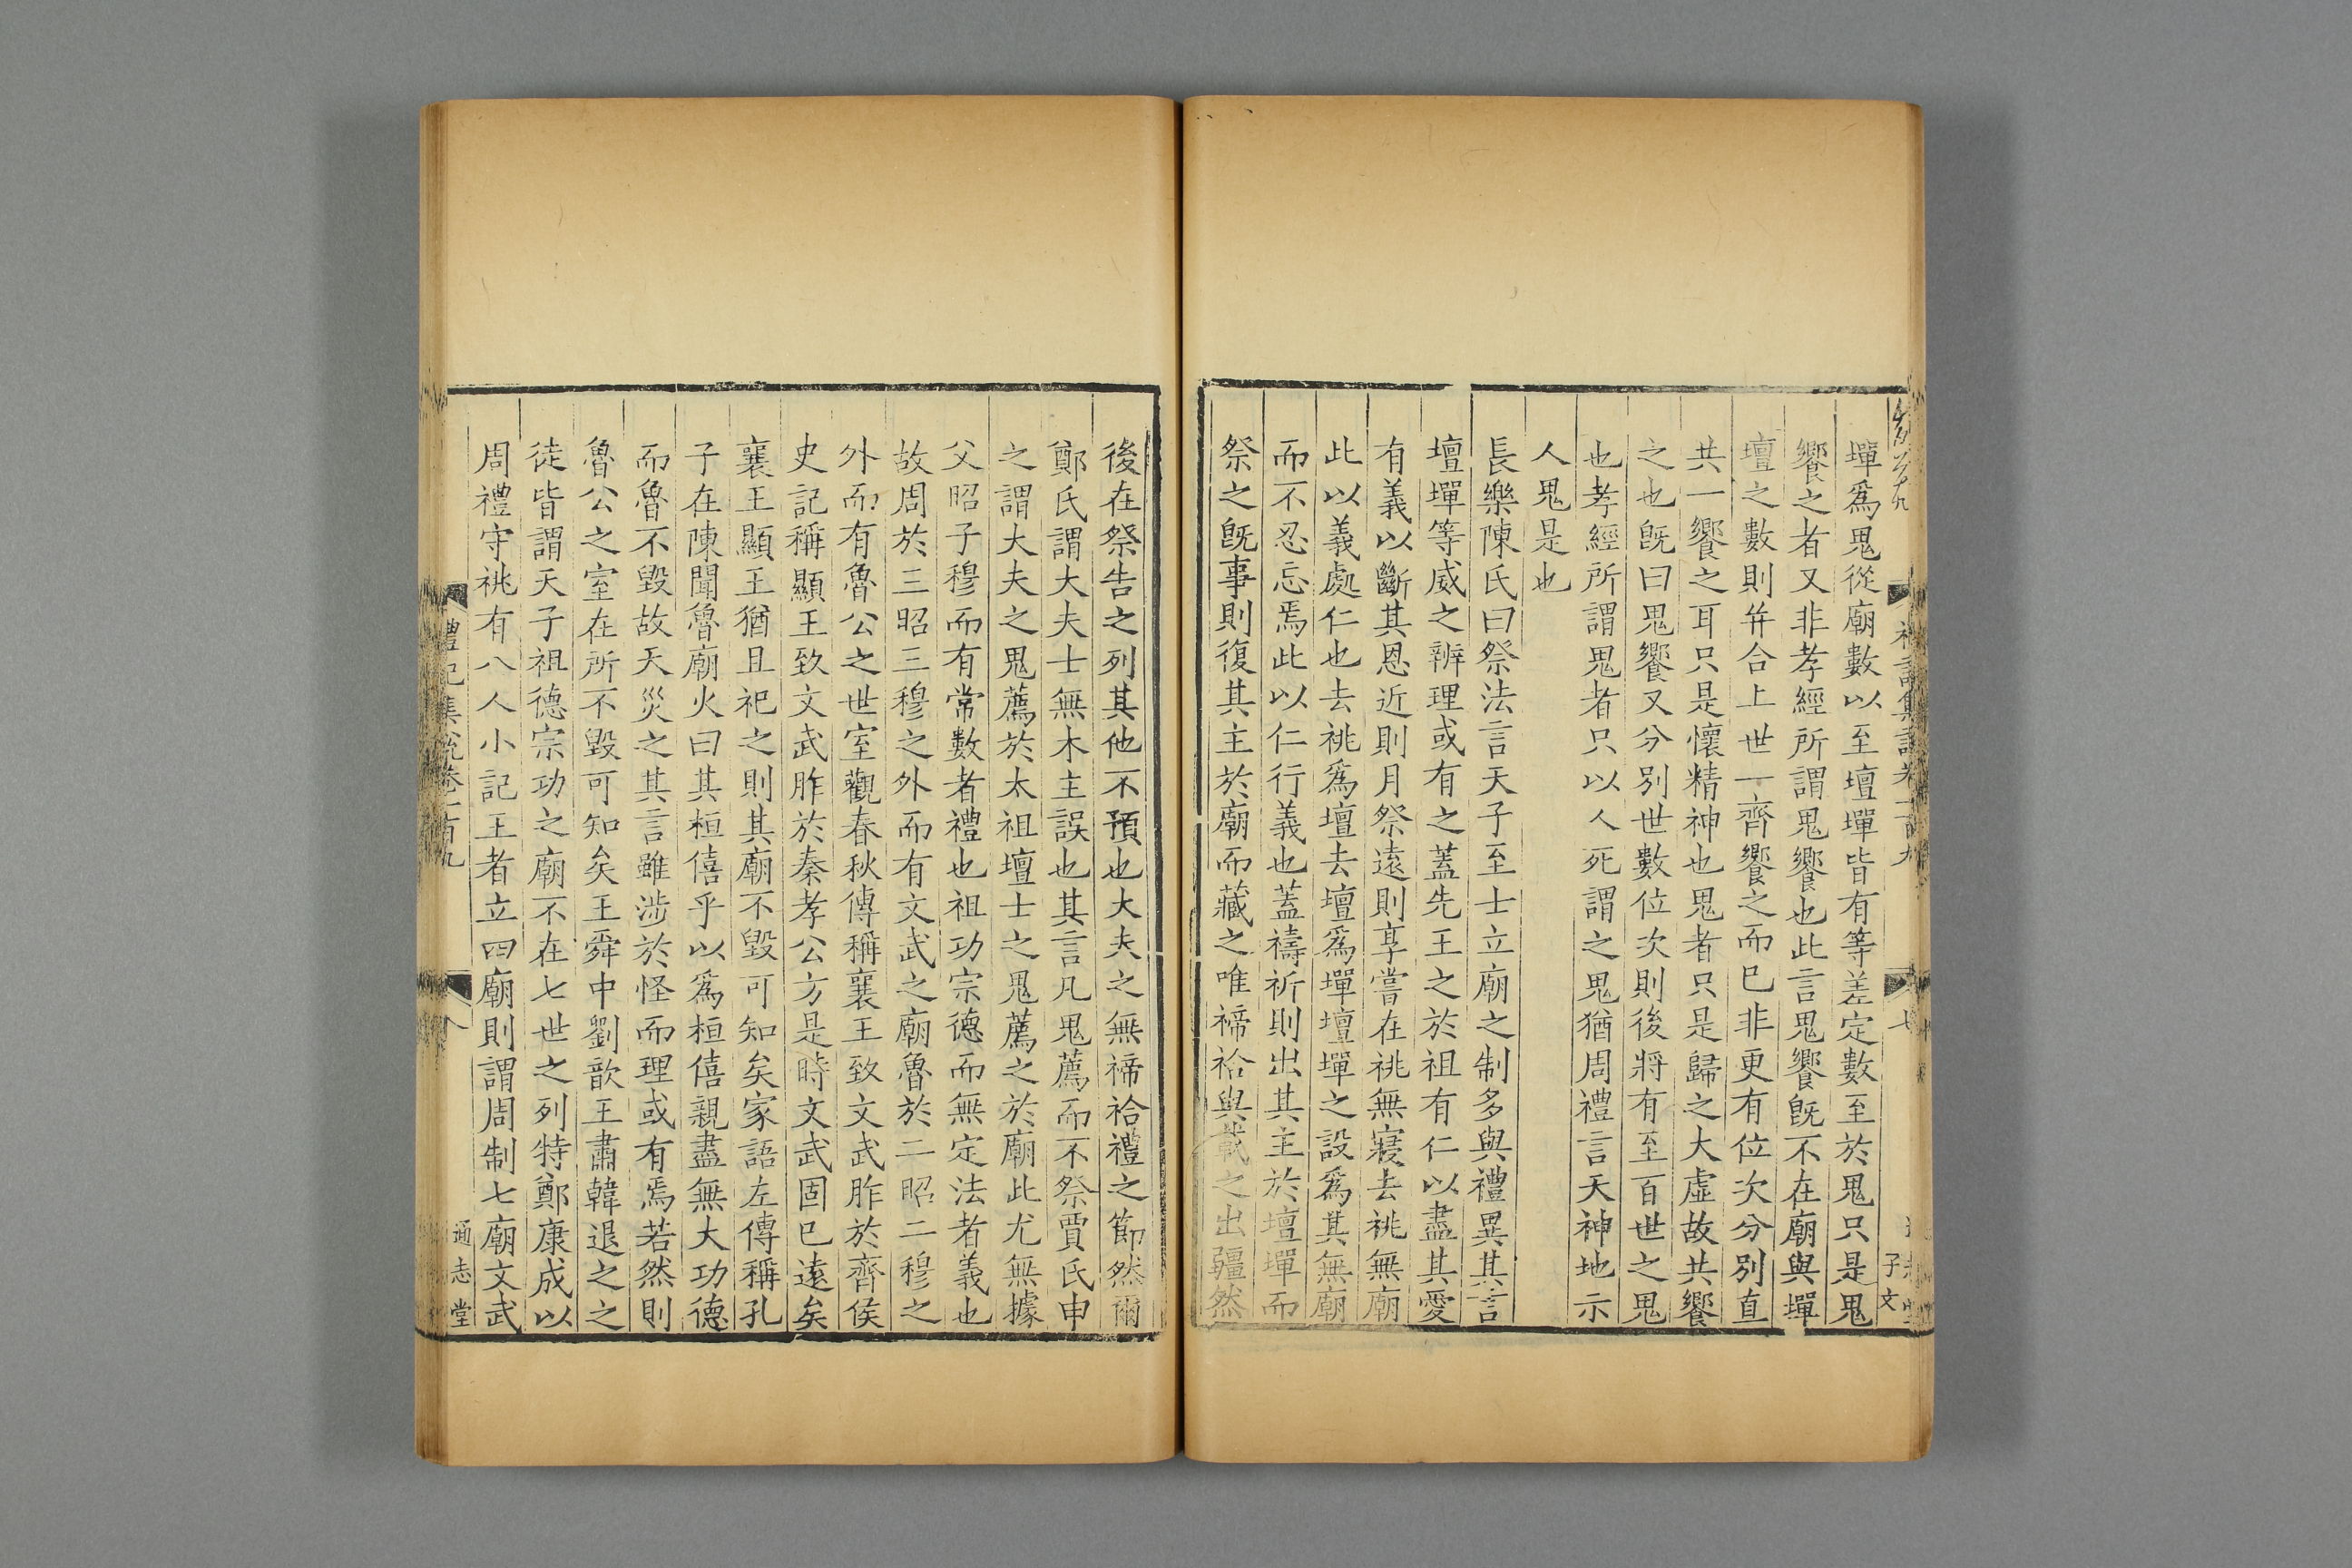 墠爲鬼從廟數以至壇墠皆有等差定數至於鬼只是鬼
饗之者又非孝經所謂鬼饗也此言鬼饗旣不在廟與墠
壇之數則并合上世一齊饗之而已非更有位次分別直
共一饗之耳只是懷精神也鬼者只是歸之大虛故共饗
之也旣曰鬼饗又分別世數位次則後將有至百世之鬼
也孝經所謂鬼者只以人死謂之鬼猶周禮言天神地示
人鬼是也
長樂陳氏曰祭法言天子至士立廟之制多與禮異其言
壇墠等威之辨理或有之蓋先王之於祖有仁以盡其愛
有義以斷其恩近則月祭遠則享嘗在祧無寢去祧無廟
此以義處仁也去祧爲壇去壇爲墠壇墠之設爲其無廟
而不忍忘焉此以仁行義也蓋禱祈則出其主於壇墠而
祭之旣事則復其主於廟而藏之唯禘祫與載之出疆然
後在祭告之列其他不預也大夫之無禘祫禮之節然爾
鄭氏謂大夫士無木主誤也其言凡鬼薦而不祭賈氏申
之謂大夫之鬼薦於太祖壇士之鬼薦之於廟此尤無據
父昭子穆而有常數者禮也祖功宗德而無定法者義也
故周於三昭三穆之外而有文武之廟魯於二昭二穆之
外而有魯公之世室觀春秋傳稱襄王致文武胙於齊侯
史記稱顯王致文武胙於秦孝公方是時文武固已遠矣
襄王顯王猶且祀之則其廟不毀可知矣家語左傳稱孔
子在陳聞魯廟火曰其桓僖乎以爲桓僖親盡無大功德
而魯不毀故天災之其言雖涉於怪而理或有焉若然則
魯公之室在所不毀可知矣王舜中劉歆王肅韓退之之
徒皆謂天子祖德宗功之廟不在七世之列特鄭康成以
周禮守祧有八人小記王者立四廟則謂周制七廟文武
禮記集說卷一百九
八
通志堂